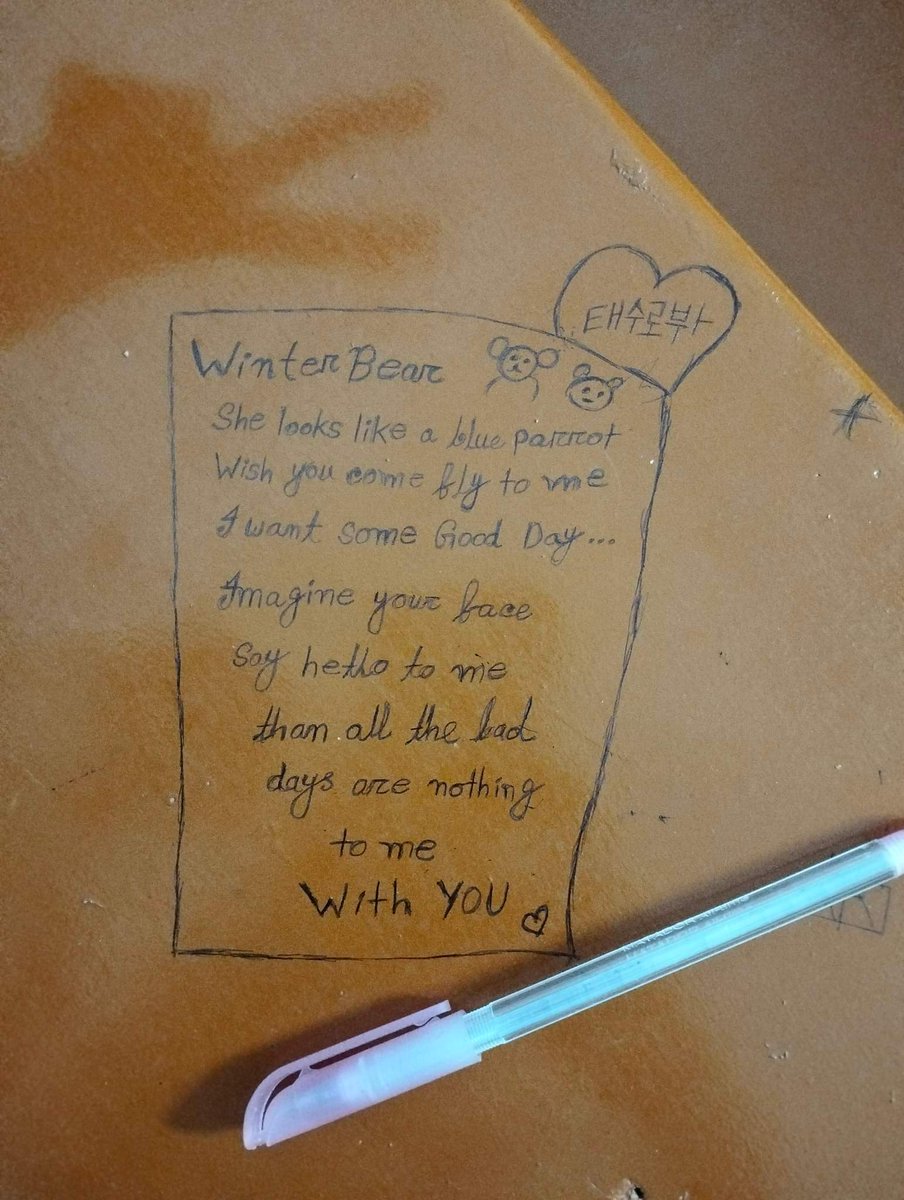 태수로부사
Winter Bear
She looks like a blue parrot
Wish you come fly to me
I want some Good Day...
Imagine your face
Say hello to me
than all the bad
days are nothing
to me
With YOU